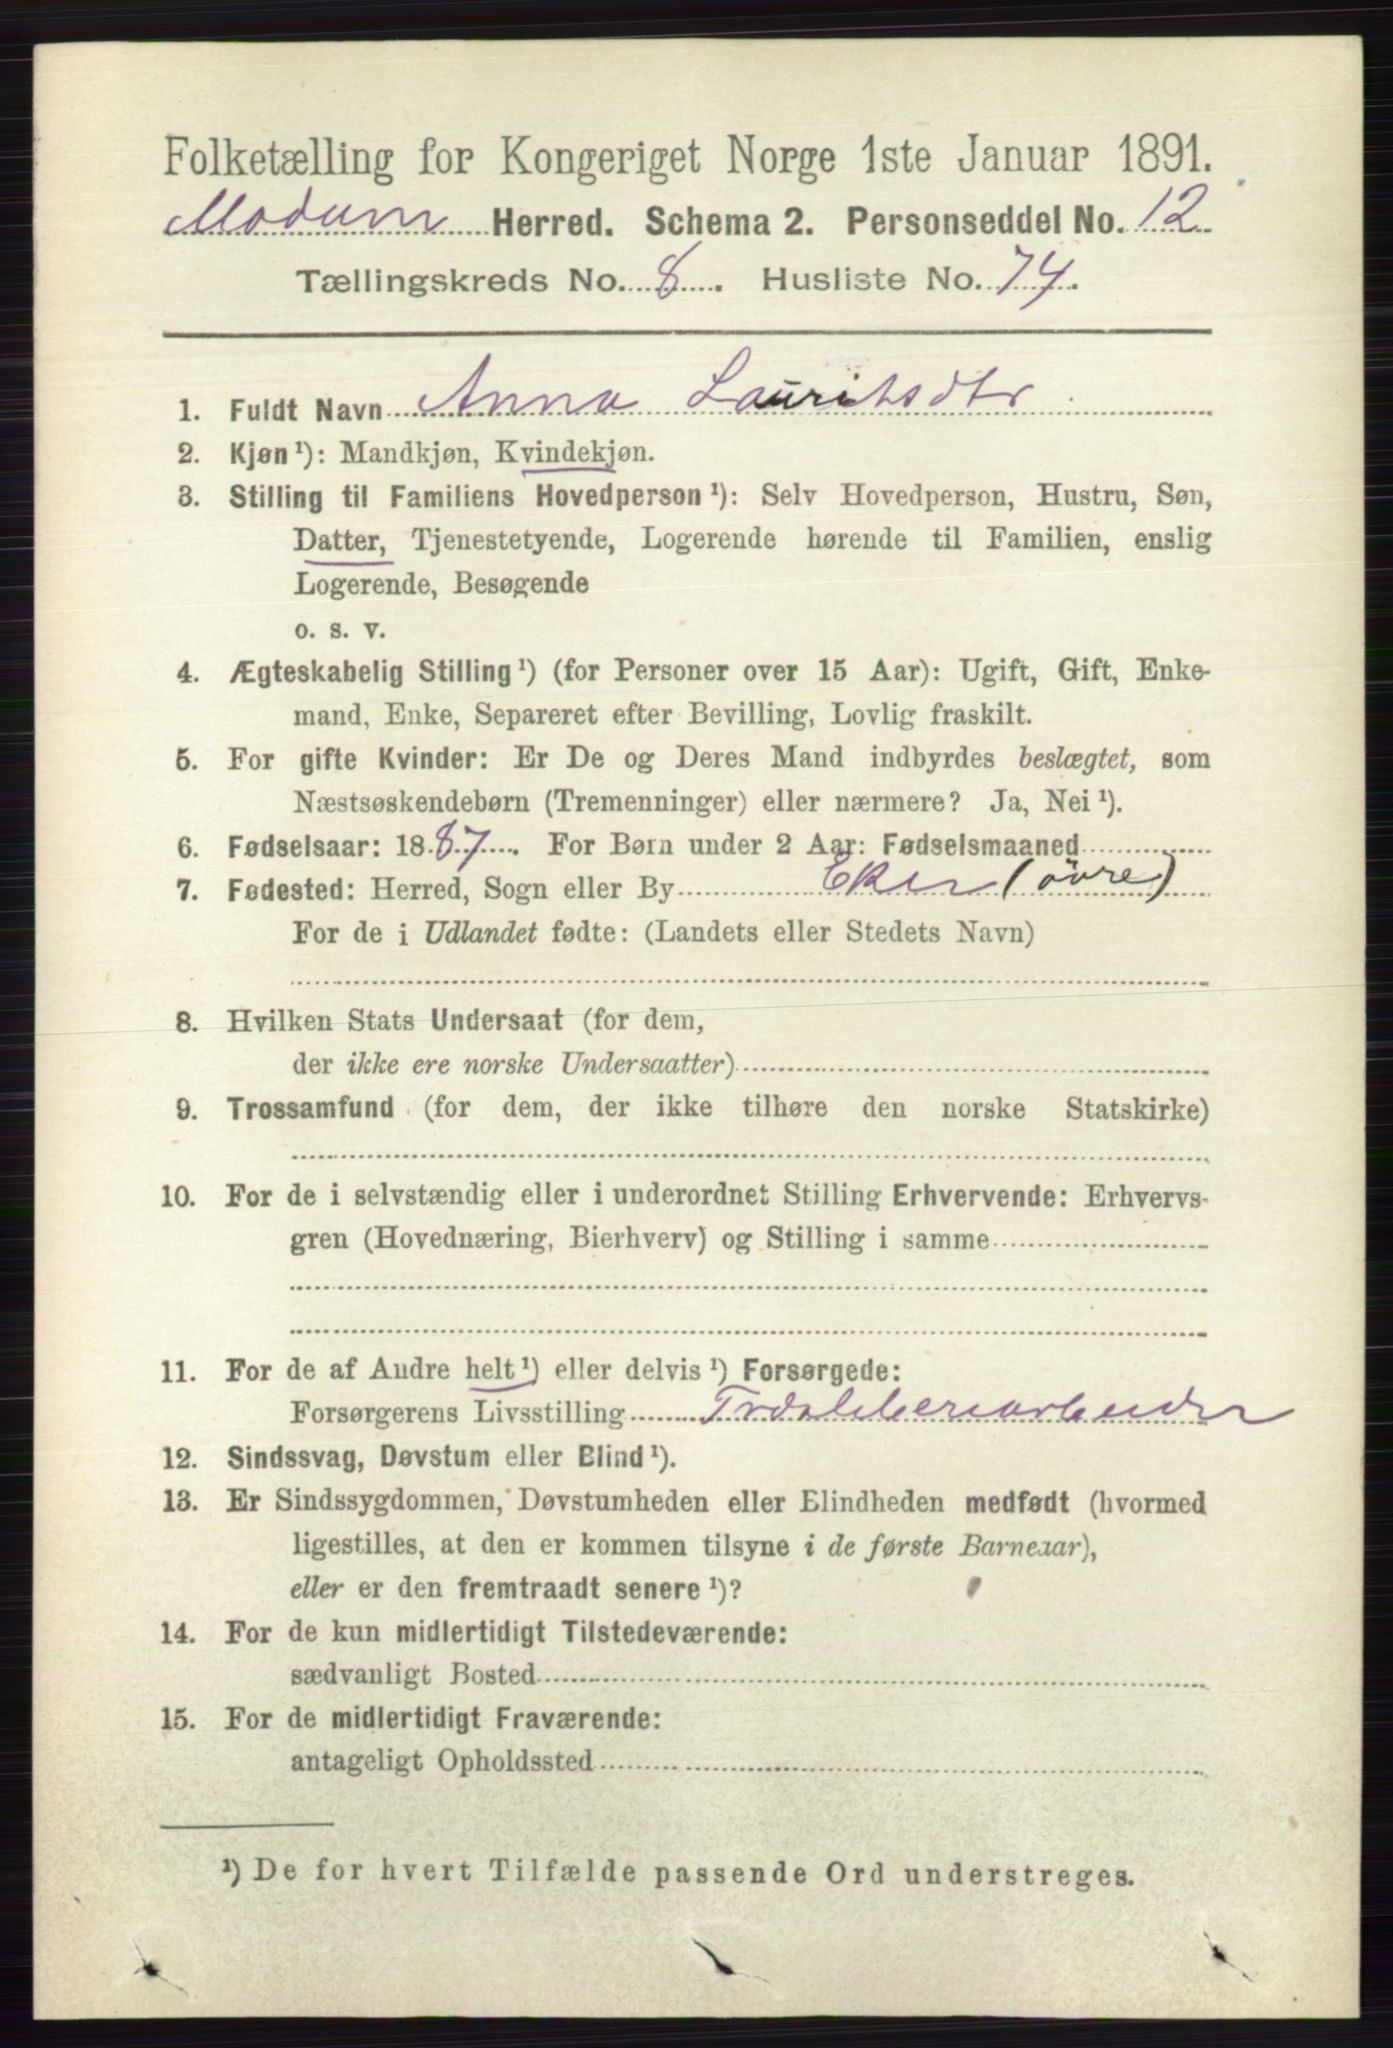 Folketælling for Kongeriget Norge 1ste Januar 1891.
Modum Herred. Schema 2. Personseddel No. 12
Tællingskreds No. 8. Husliste No. 74.
1. Fuldt Navn Anna Lauritsdtr
2. Kjøn¹): Mandkjøn, Kvindekjøn.
3. Stilling til Familiens Hovedperson¹): Selv Hovedperson, Hustru, Søn,
Datter, Tjenestetyende, Logerende hørende til Familien, enslig
Logerende, Besøgende
o. s. v.
4. Ægteskabelig Stilling¹) (for Personer over 15 Aar): Ugift, Gift, Enke-
mand, Enke, Separeret efter Bevilling, Lovlig fraskilt.
5. For gifte Kvinder: Er De og Deres Mand indbyrdes beslægtet, som
Næstsøskendebørn (Tremenninger) eller nærmere? Ja, Nei¹).
6. Fødselsaar: 1887. For Børn under 2 Aar: Fødselsmaaned
7. Fødested: Herred, Sogn eller By Eker (övre)
For de i Udlandet fødte: (Landets eller Stedets Navn)
8. Hvilken Stats Undersaat (for dem,
der ikke ere norske Undersaatter)
9. Trossamfund (for dem, der ikke tilhøre den norske Statskirke)
10. For de i selvstændig eller i underordnet Stilling Erhvervende: Erhvervs-
gren (Hovednæring, Bierhverv) og Stilling i samme
11. For de af Andre helt¹) eller delvis¹) Forsørgede:
Forsørgerens Livsstilling
12. Sindssvag, Døvstum eller Blind¹).
13. Er Sindssygdommen, Døvstumheden eller Blindheden medfødt (hvormed
ligestilles, at den er kommen tilsyne i de første Barneaar),
eller er den fremtraadt senere¹)?
14. For de kun midlertidigt Tilstedeværende:
sædvanligt Bosted
15. For de midlertidigt Fraværende:
antageligt Opholdssted
¹) De for hvert Tilfælde passende Ord understreges.